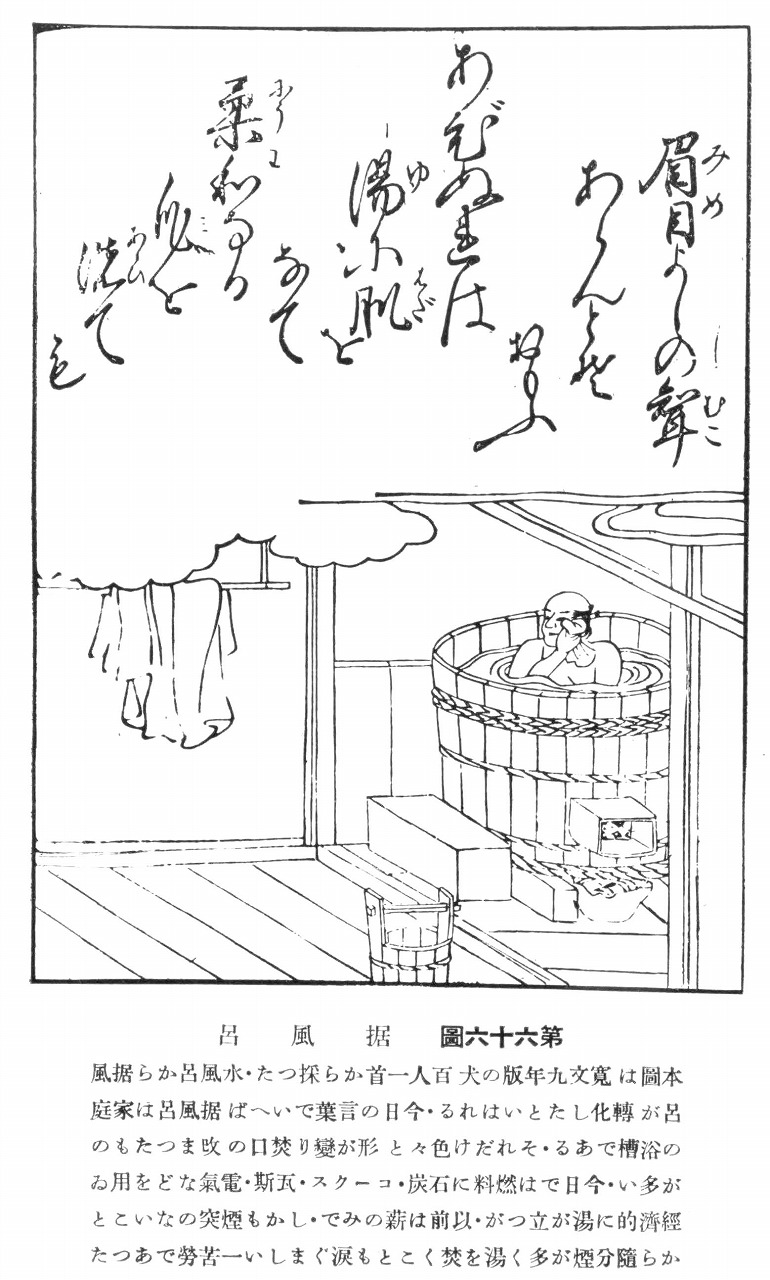 あびぬれは
湯に肌を
なて
柔和なる
皃を
洗て
も
眉目よしの聟
あらんとそ
おもふ
第六十六圖 据風呂
本圖は寬文九年版の犬百人一首から採つた・水風呂から据風
呂が轉化したといはれる・今日の言葉でいへば据風呂は家庭
の浴槽である・それだけ色々と形が變り焚口の改まつたもの
が多い・今日では燃料に石炭・コークス・瓦斯・電氣などを用ゐ
經濟的に湯が立つが・以前は薪のみで・しかも煙突のないこと
から隨分煙が多く湯を焚くことも淚ぐましい一苦勞であつた